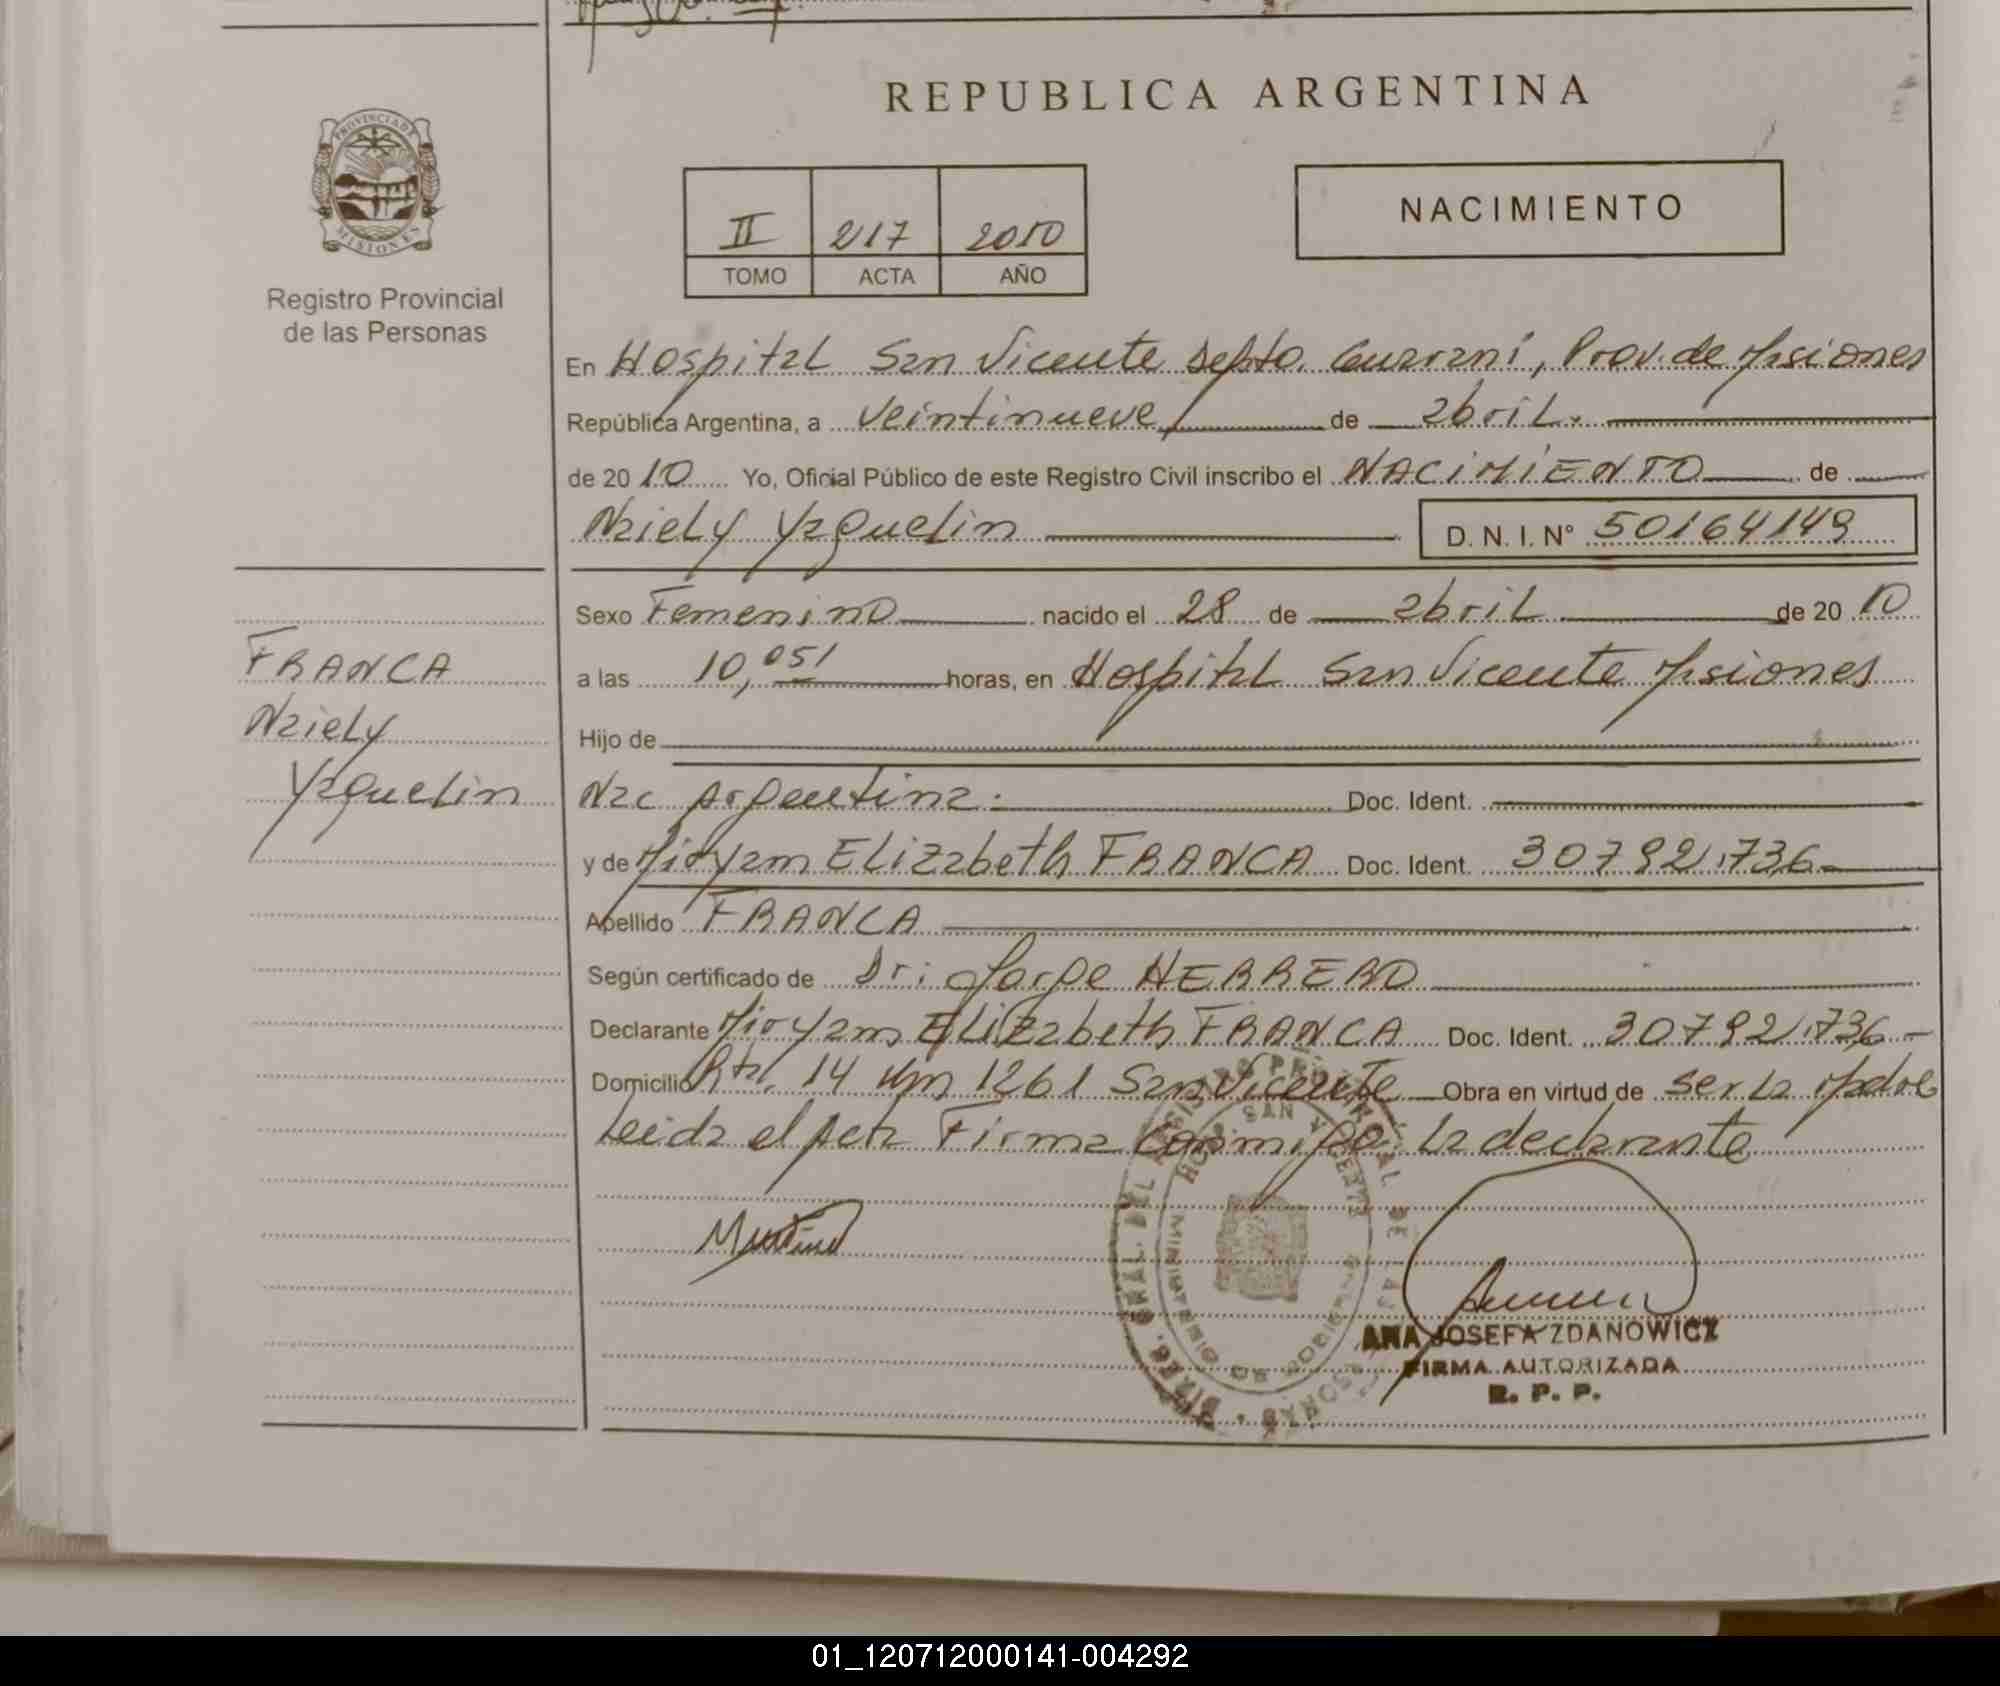 REPUBLICA ARGENTINA
PROVINCIA DE
MISIONES
Registro Provincial
de las Personas
II 217 2010
TOMO ACTA AÑO
NACIMIENTO
En Hospital San Vicente Depto. Guaraní, Prov. de Misiones
República Argentina, a veintinueve de abril.
de 2010 Yo, Oficial Público de este Registro Civil inscribo el NACIMIENTO de
Naiely Yaquelin D. N. I. N° 50164149
Sexo Femenino nacido el 28 de abril de 2010
a las 10,05 horas, en Hospital San Vicente Misiones
Hijo de
Nac Argentina. Doc. Ident.
y de Miryam Elizabeth FRANCA Doc. Ident. 30.792.736
Apellido FRANCA
Según certificado de Dr: Jorge HERRERO
Declarante Miryam Elizabeth FRANCA Doc. Ident. 30.792.736
Domicilio Rta. 14 Km 1261 San Vicente Obra en virtud de ser la Madre
Leida el Acta Firma conmigo la declarante
FRANCA
Naiely
Yaquelin
SAN VICENTE
MINISTERIO DE GOBIERNO
ANA JOSEFA ZDANOWICZ
FIRMA AUTORIZADA
R. P. P.
01_120712000141-004292